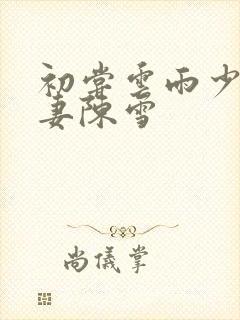 初尝雲雨少
妻陳雪
尚儀掌